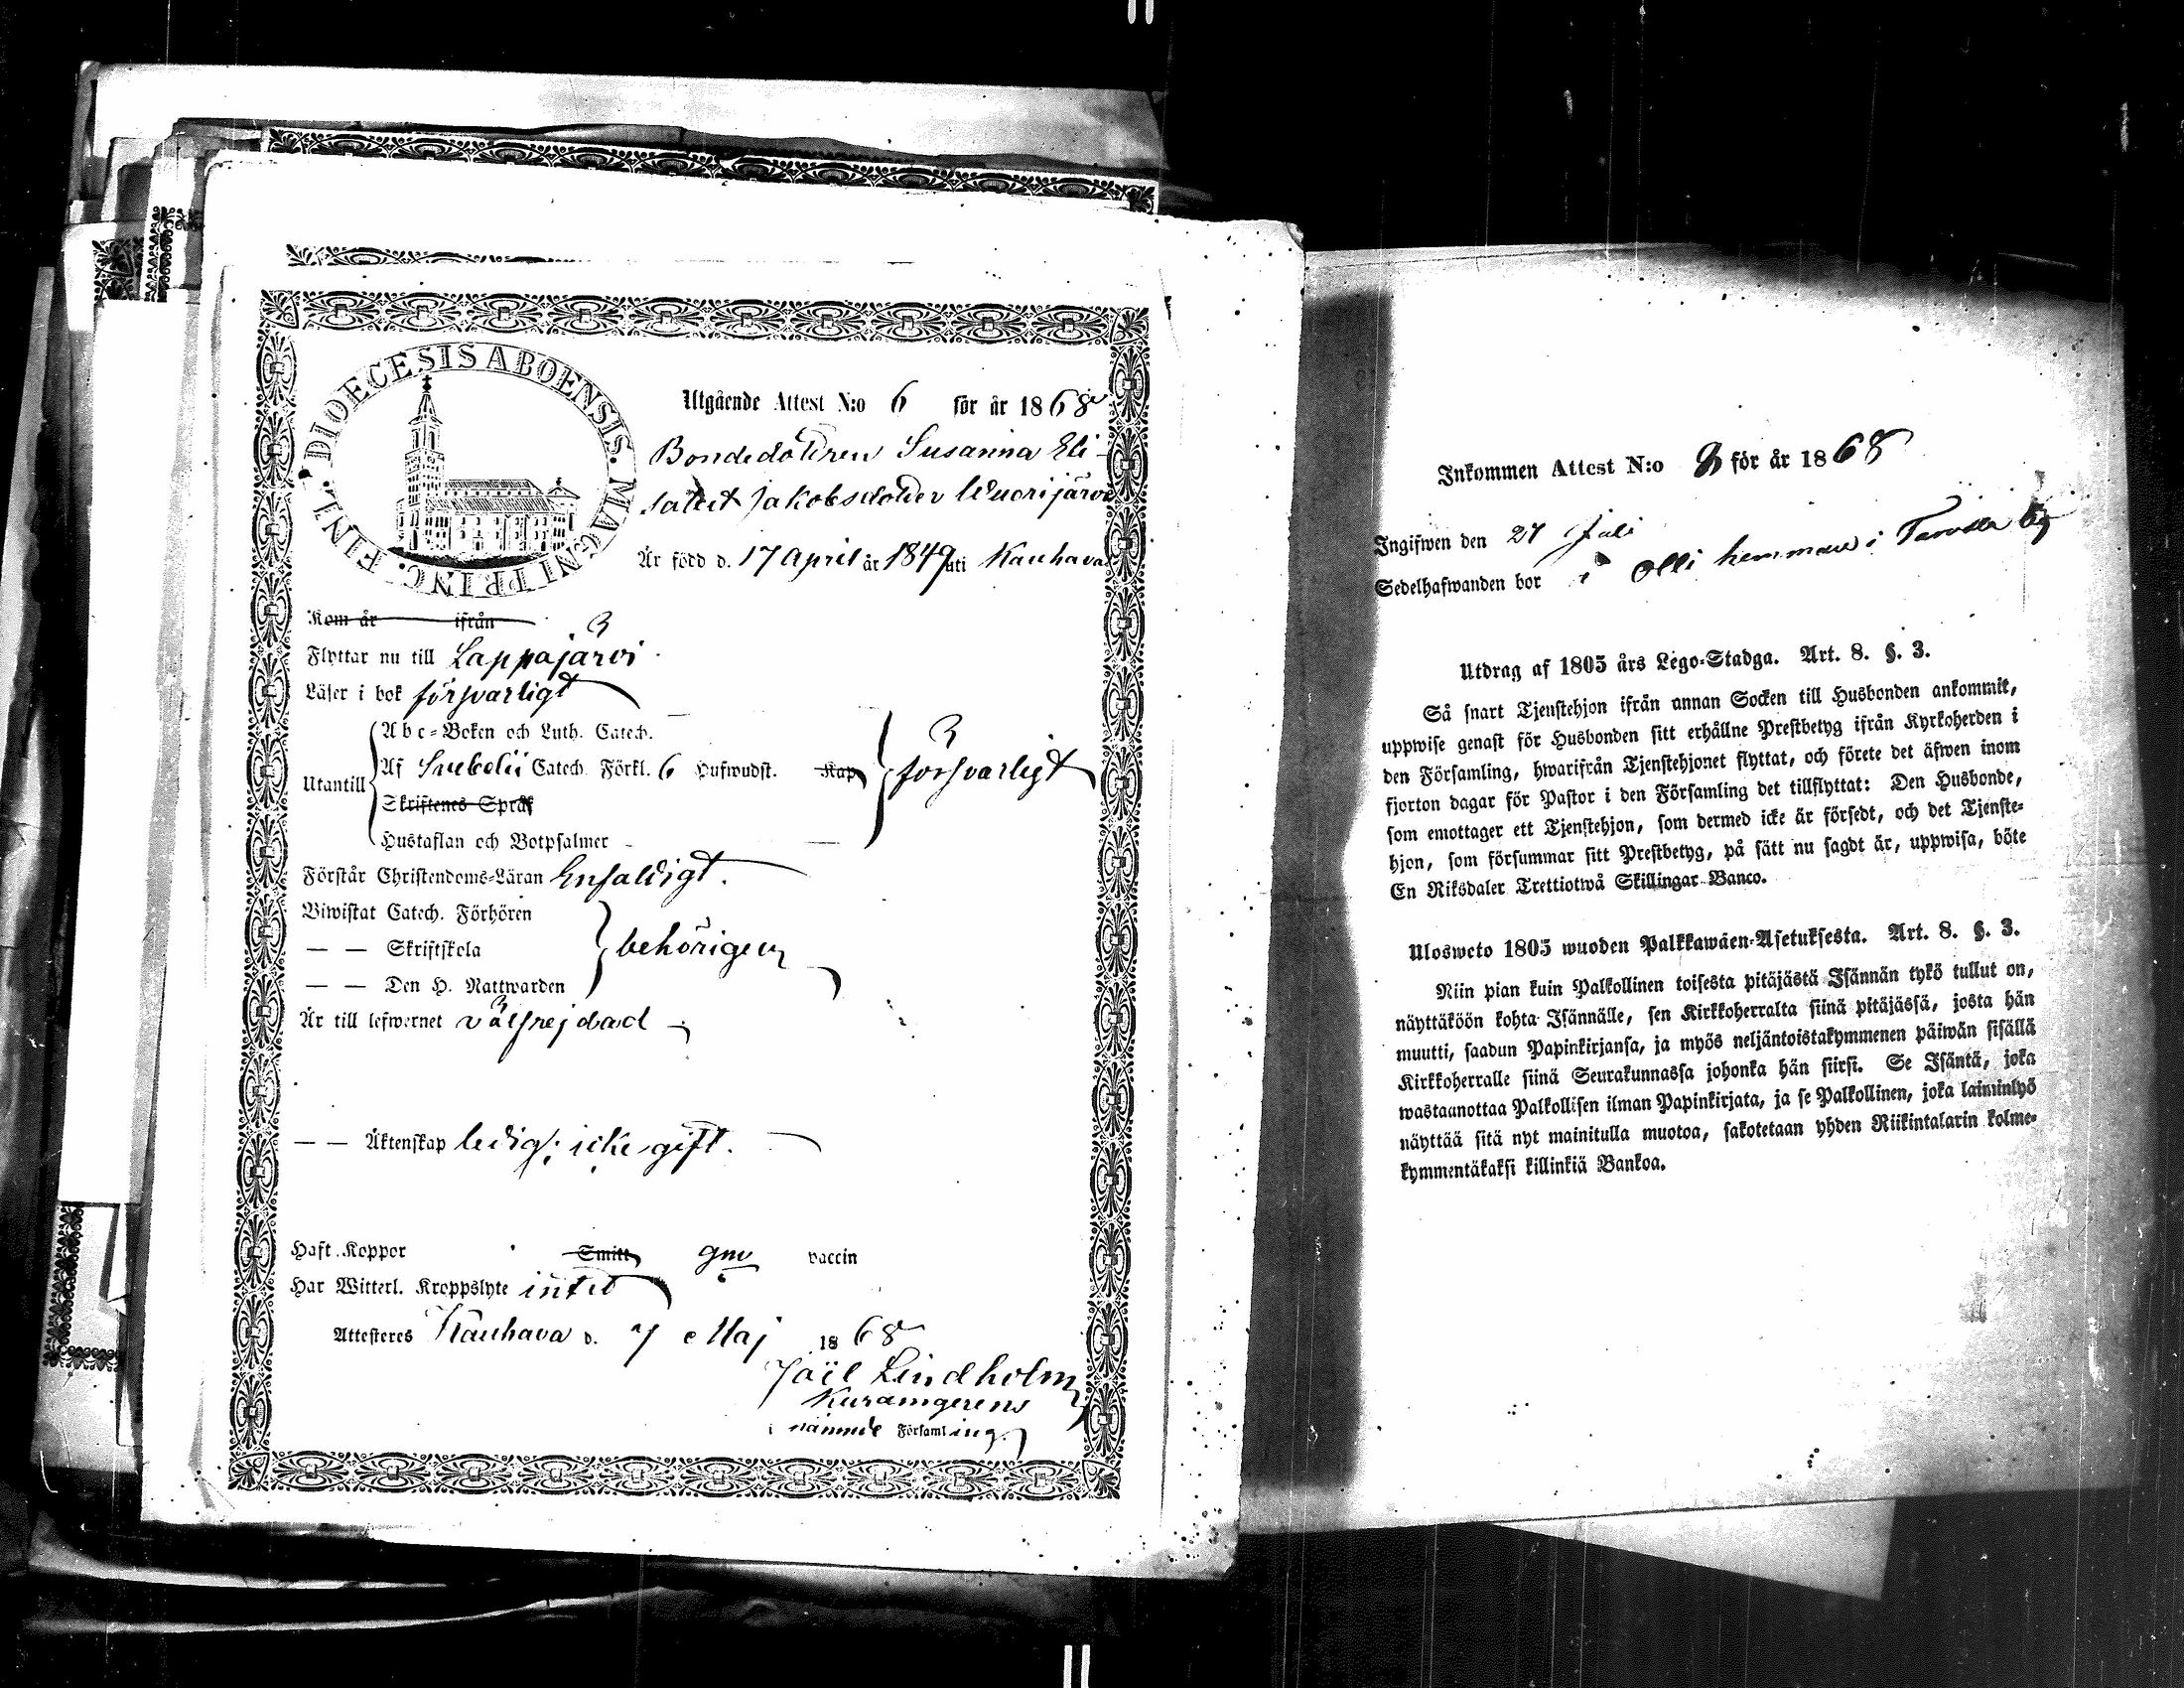 DIOECESIS ABOENSIS. MAGNI PRINC. FINL.
Utgående Attest N:o 6 för år 1868
Bondedottren Susanna Eli-
sabet Jakobsdotter Wuorijärvi
Är född d. 17 April år 1849 uti Kauhava
Kom år ifrån
Flyttar nu till Lappajärvi
Läser i bok försvarligt
Abc-Boken och Luth. Catech.
Utantill Af Svebelii Catech. Förkl. 6 Hufwudst. Kap försvarligt
Skriftenes Språk
Hustaflan och Botpsalmer
Förstår Christendoms-Läran Enfaldigt.
Biwistat Catech. Förhören
— — Skriftskola behörigen
— — Den H. Nattwarden
Är till lefwernet välfrejdad
— — Äktenskap ledig; icke gift.
Haft Koppor Smitt gm vaccin
Har Witterl. Kroppslyte intet
Attesteres Kauhava d. 7 Maj 1868
Joël Lindholm
Kuramgerens
i nämnde Församling.
Inkommen Attest N:o för år 1868
Ingifwen den 27 Juli
Sedelhafwanden bor i Olli hemman i by
Utdrag af 1805 års Lego-Stadga. Art. 8. §. 3.
Så snart Tjenstehjon ifrån annan Socken till Husbonden ankommit,
uppwise genast för Husbonden sitt erhållne Prestbetyg ifrån Kyrkoherden i
den Församling, hwarifrån Tjenstehjonet flyttat, och förete det äfwen inom
fjorton dagar för Pastor i den Församling det tillflyttat: Den Husbonde,
som emottager ett Tjenstehjon, som dermed icke är försedt, och det Tjenste-
hjon, som försummar sitt Prestbetyg, på sätt nu sagdt är, uppwisa, böte
En Riksdaler Trettiotwå Skillingar Banco.
Ulosweto 1805 wuoden Palkkawäen-Asetuksesta. Art. 8. §. 3.
Niin pian kuin Palkollinen toisesta pitäjästä Isännän tykö tullut on,
näyttäköön kohta Isännälle, sen Kirkkoherralta siinä pitäjässä, josta hän
muutti, saadun Papinkirjansa, ja myös neljäntoistakymmenen päiwän sisällä
Kirkkoherralle siinä Seurakunnassa johonka hän siirsi. Se Isäntä, joka
wastaanottaa Palkollisen ilman Papinkirjata, ja se Palkollinen, joka laiminlyö
näyttää sitä nyt mainitulla muotoa, sakotetaan yhden Riikintalarin kolme-
kymmentäkaksi killinkiä Bankoa.